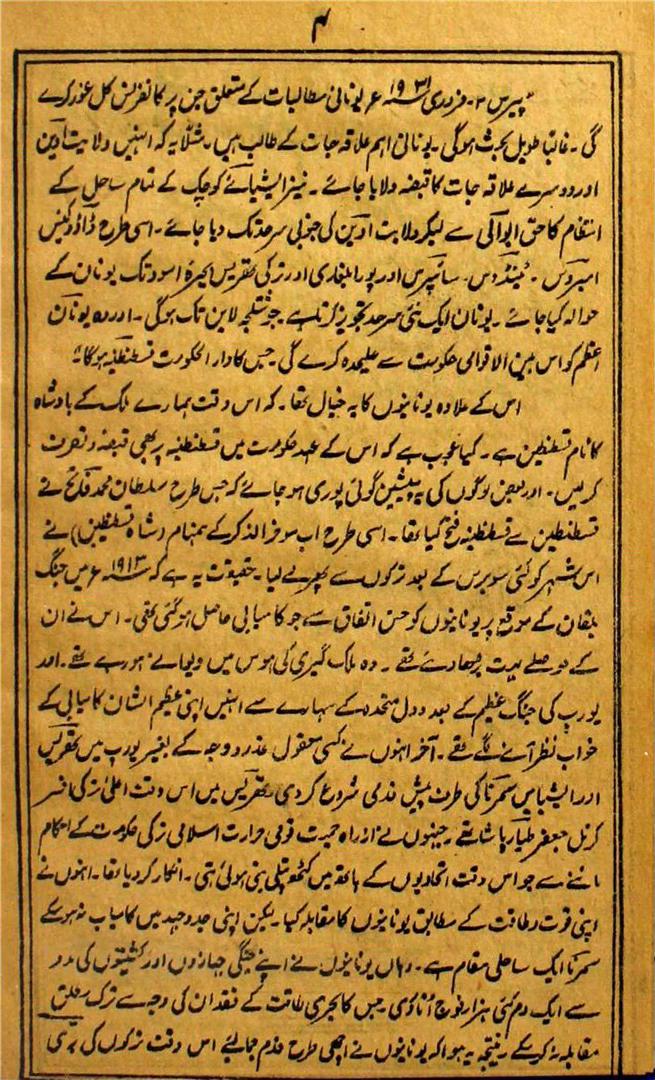 ۴
"پیرس ۲۔ فروری ۱۹۳۱ء یونانی مطالبات کے متعلق جن پر کانفرنس کل غور کرے
گی۔ غالباً طویل بحث ہوگی۔ یونانی اہم علاقہ جات کے طالب ہیں۔ مثلاً یہ کہ انہیں ولایت آدین
اور دوسرے علاقہ جات کا قبضہ دلایا جائے۔ نیز ایشیائے کوچک کے تمام ساحل کے
انتظام کا حق ایوالی سے لیکر ولایت اوین کی جنوبی سرحد تک دیا جائے۔ اسی طرح ڈاڈوکینس
امبروس۔ ٹینڈوس۔ سائپرس اور پورا بلغاری اور ترکی تھریس بحیرۂ اسود تک یونان کے
حوالہ کیا جائے۔ یونان ایک نئی سرحد تجویز کرتا ہے۔ جو شتلجہ لاین تک ہوگی۔ اور وہ یونان
اعظم کو اس بین الاقوامی حکومت سے علیحدہ کرے گی جس کا دارالحکومت قسطنطنیہ ہوگا۔"
اس کے علاوہ یونانیوں کا یہ خیال تھا۔ کہ اس وقت ہمارے ملک کے بادشاہ
کا نام قسطنطین ہے۔ کیا عجب ہے کہ اس کے عہد حکومت میں قسطنطنیہ پر بھی قبضہ و تصرف
کرلیں۔ اور بعض لوگوں کی یہ پیشین گوئی پوری ہو جائے کہ جس طرح سلطان محمد فاتح نے
قسطنطین سے قسطنطنیہ فتح کیا تھا۔ اسی طرح اب موخر الذکر کے ہمنام (شاہ قسطنطین) نے
اس شہر کو کئی سو برس کے بعد ترکوں سے پھر لے لیا۔ حقیقت یہ ہے کہ ۱۹۱۳ء میں جنگ
بلقان کے موقع پر یونانیوں کو حسن اتفاق سے جو کامیابی حاصل ہو گئی تھی۔ اس نے ان
کے حوصلے بہت بڑھا دئے تھے۔ وہ ملک گیری کی ہوس میں دیوانے ہو رہے تھے۔ اور
یورپ کی جنگ عظیم کے بعد دول متحدہ کے سہارے سے انہیں اپنی عظیم الشان کامیابی کے
خواب نظر آنے لگے تھے۔ آخر انہوں نے کسی معقول عذر و وجہ کے بغیر یورپ میں تھریس
اور ایشیا میں سمرنا کی طرف پیش قدمی شروع کردی تھریس میں اس وقت اعلیٰ ترکی افسر
کرنل جعفر طیار پاشا تھے۔ جنہوں نے از راہ حمیت قومی و حرارت اسلامی ترکی حکومت کے احکام
ماننے سے جو اس وقت اتحادیوں کے ہاتھ میں کٹھ پتلی بنی ہوئی تھی۔ انکار کردیا تھا۔ انہوں نے
اپنی قوت و طاقت کے مطابق یونانیوں کا مقابلہ کیا۔ لیکن اپنی جدوجہد میں کامیاب نہ ہوسکے
سمرنا ایک ساحلی مقام ہے۔ وہاں یونانیوں نے اپنے جنگی جہازوں اور کشتیوں کی مدد
سے ایک دم کئی ہزار فوج اتار دی۔ جس کا بحری طاقت کے فقدان کی وجہ سے ترک مطلق
مقابلہ نہ کرسکے۔ نتیجہ یہ ہوا کہ یونانیوں نے اچھی طرح قدم جمالئے اس وقت ترکوں کی بری